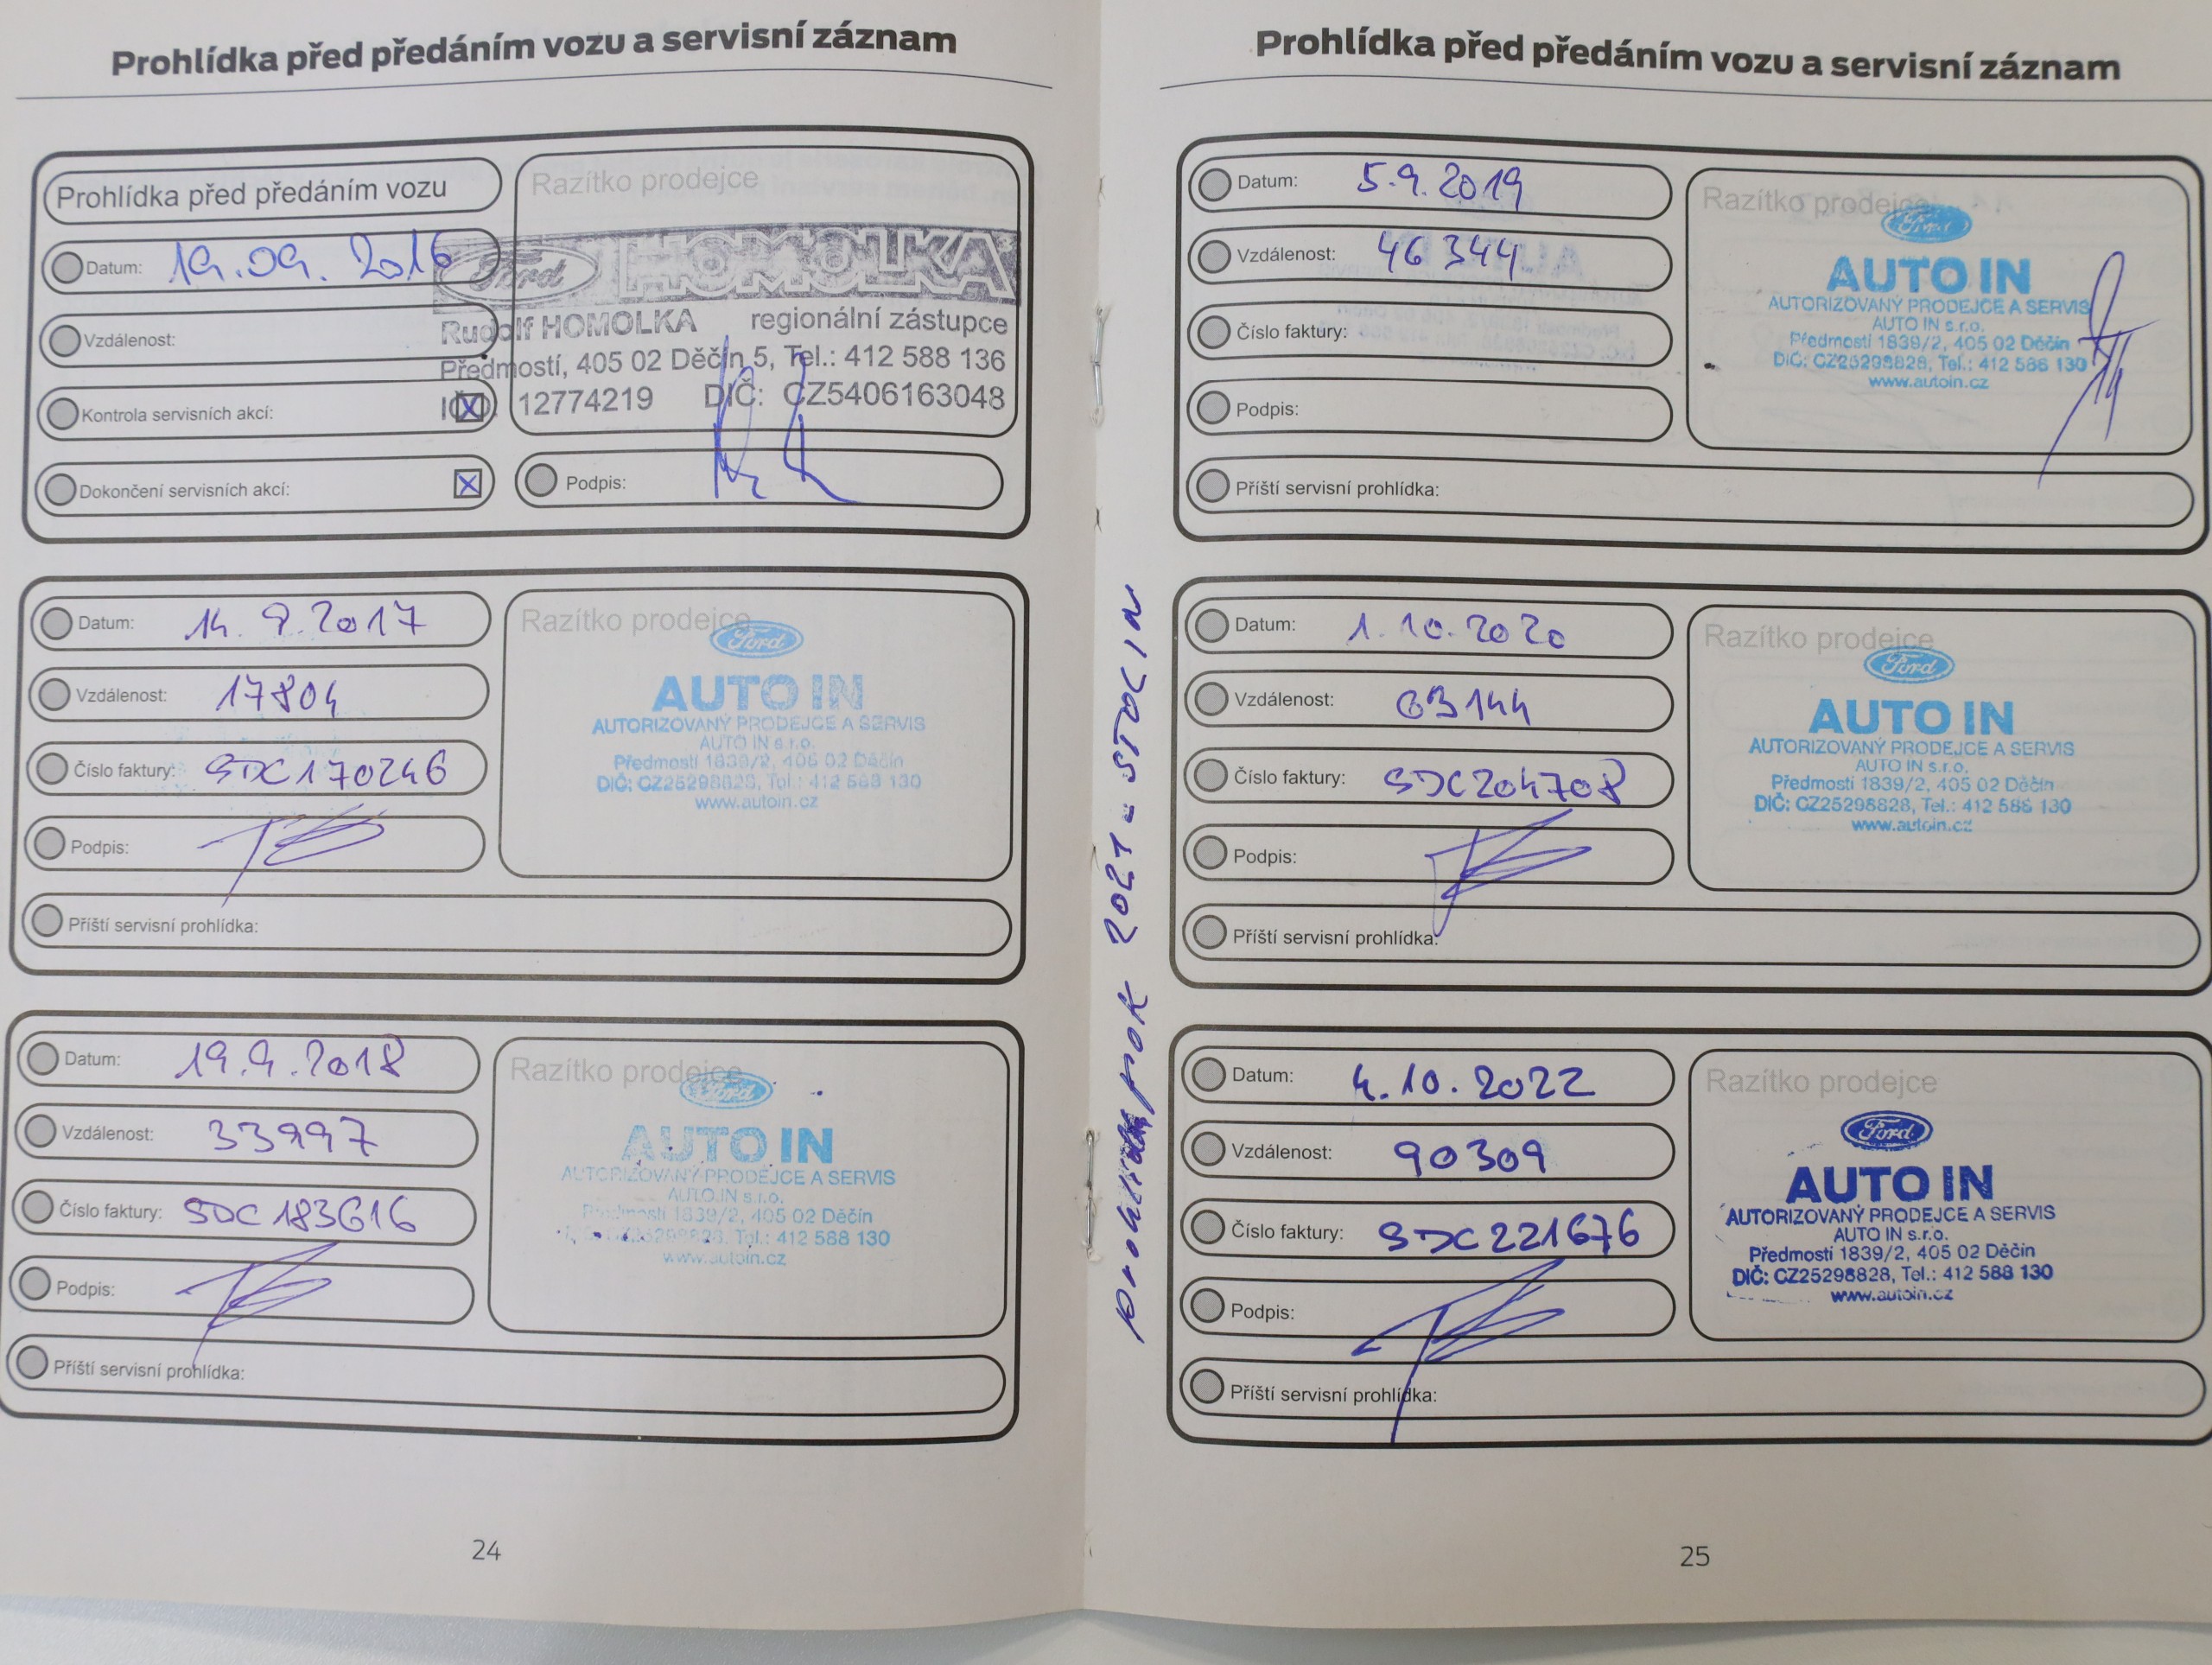 Prohlídka před předáním vozu a servisní záznam
Prohlídka před předáním vozu
Datum: 19.09.2016
Vzdálenost:
Kontrola servisních akcí: X
Dokončení servisních akcí: X
Razítko prodejce
Ford HOMOLKA
Rudolf HOMOLKA regionální zástupce
Předmostí, 405 02 Děčín 5, Tel.: 412 588 136
12774219 DIČ: CZ5406163048
Podpis:
Datum: 14.9.2017
Vzdálenost: 17804
Číslo faktury: SDC170246
Podpis:
Příští servisní prohlídka:
Razítko prodejce
Ford
AUTO IN
AUTORIZOVANÝ PRODEJCE A SERVIS
AUTO IN s.r.o.
Předmostí 1839/2, 405 02 Děčín
DIČ: CZ25298828, Tel.: 412 588 130
www.autoin.cz
Datum: 19.9.2018
Vzdálenost: 33997
Číslo faktury: SDC183616
Podpis:
Příští servisní prohlídka:
Razítko prodejce
Ford
AUTO IN
AUTORIZOVANÝ PRODEJCE A SERVIS
AUTO IN s.r.o.
Předmostí 1839/2, 405 02 Děčín
Tel.: 412 588 130
www.autoin.cz
24
Prohlídka před předáním vozu a servisní záznam
Datum: 5.9.2019
Vzdálenost: 46344
Číslo faktury:
Podpis:
Příští servisní prohlídka:
Razítko prodejce
Ford
AUTO IN
AUTORIZOVANÝ PRODEJCE A SERVIS
AUTO IN s.r.o.
Předmostí 1839/2, 405 02 Děčín
DIČ: CZ25298828, Tel.: 412 588 130
www.autoin.cz
ROK 2021 =
Datum: 1.10.2020
Vzdálenost: 63144
Číslo faktury: SDC204708
Podpis:
Příští servisní prohlídka:
Razítko prodejce
Ford
AUTO IN
AUTORIZOVANÝ PRODEJCE A SERVIS
AUTO IN s.r.o.
Předmostí 1839/2, 405 02 Děčín
DIČ: CZ25298828, Tel.: 412 588 130
www.autoin.cz
Datum: 4.10.2022
Vzdálenost: 90309
Číslo faktury: SDC221676
Podpis:
Příští servisní prohlídka:
Razítko prodejce
Ford
AUTO IN
AUTORIZOVANÝ PRODEJCE A SERVIS
AUTO IN s.r.o.
Předmostí 1839/2, 405 02 Děčín
DIČ: CZ25298828, Tel.: 412 588 130
www.autoin.cz
25